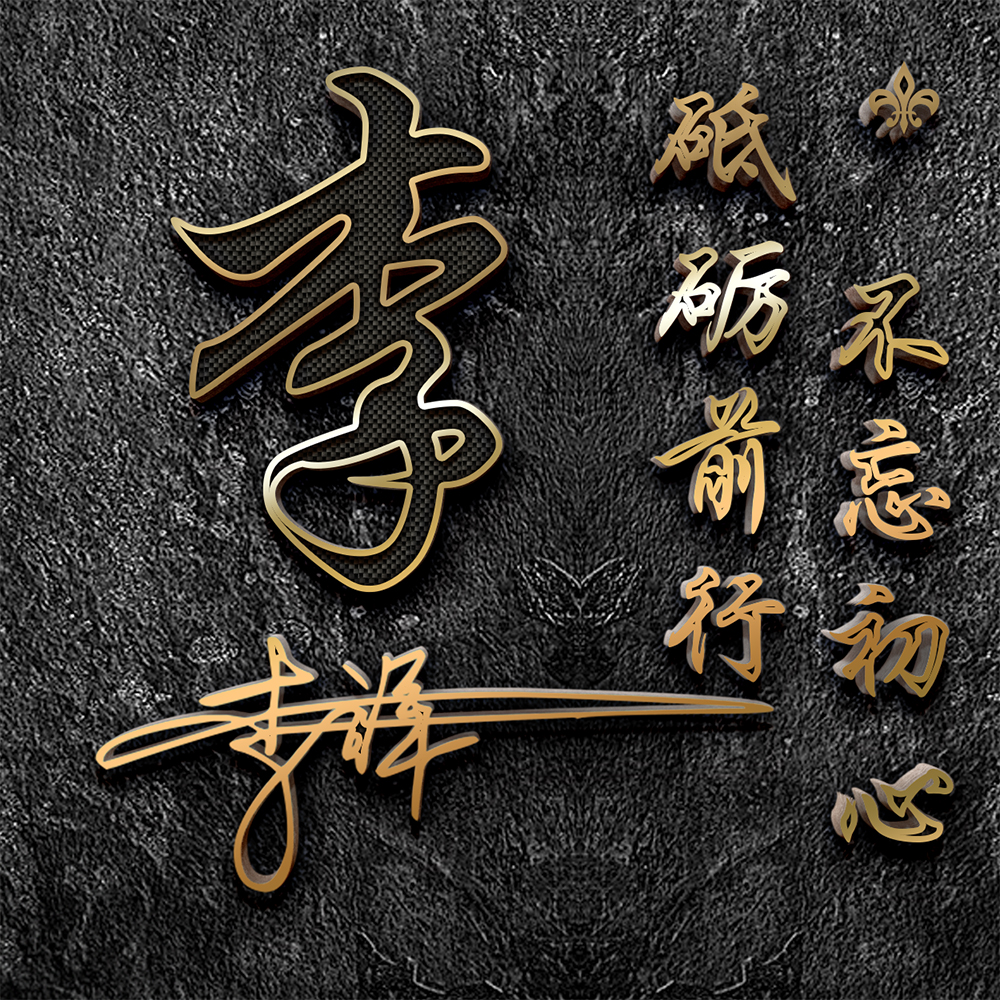 不忘初心
砥砺前行
李
李辉